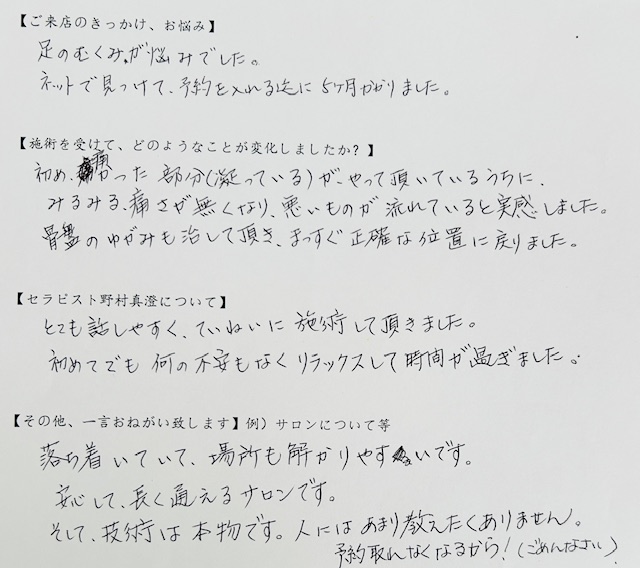 【ご来店のきっかけ、お悩み】
足のむくみが悩みでした。
ネットで見つけて、予約を入れる迄に5ケ月かかりました。
【施術を受けて、どのようなことが変化しましたか？】
初め、痛かった部分(凝っている)が、やって頂いているうちに、
みるみる、痛さが無くなり、悪いものが流れていると実感しました。
骨盤のゆがみも治して頂き、まっすぐ正確な位置に戻りました。
【セラピスト野村真澄について】
とても話しやすく、ていねいに施術して頂きました。
初めてでも何の不安もなくリラックスして時間が過ぎました。
【その他、一言おねがい致します】例）サロンについて等
落ち着いていて、場所も解かりやすいです。
安心して、長く通えるサロンです。
そして、技術は本物です。人にはあまり教えたくありません。
予約取れなくなるから！(ごめんなさい)